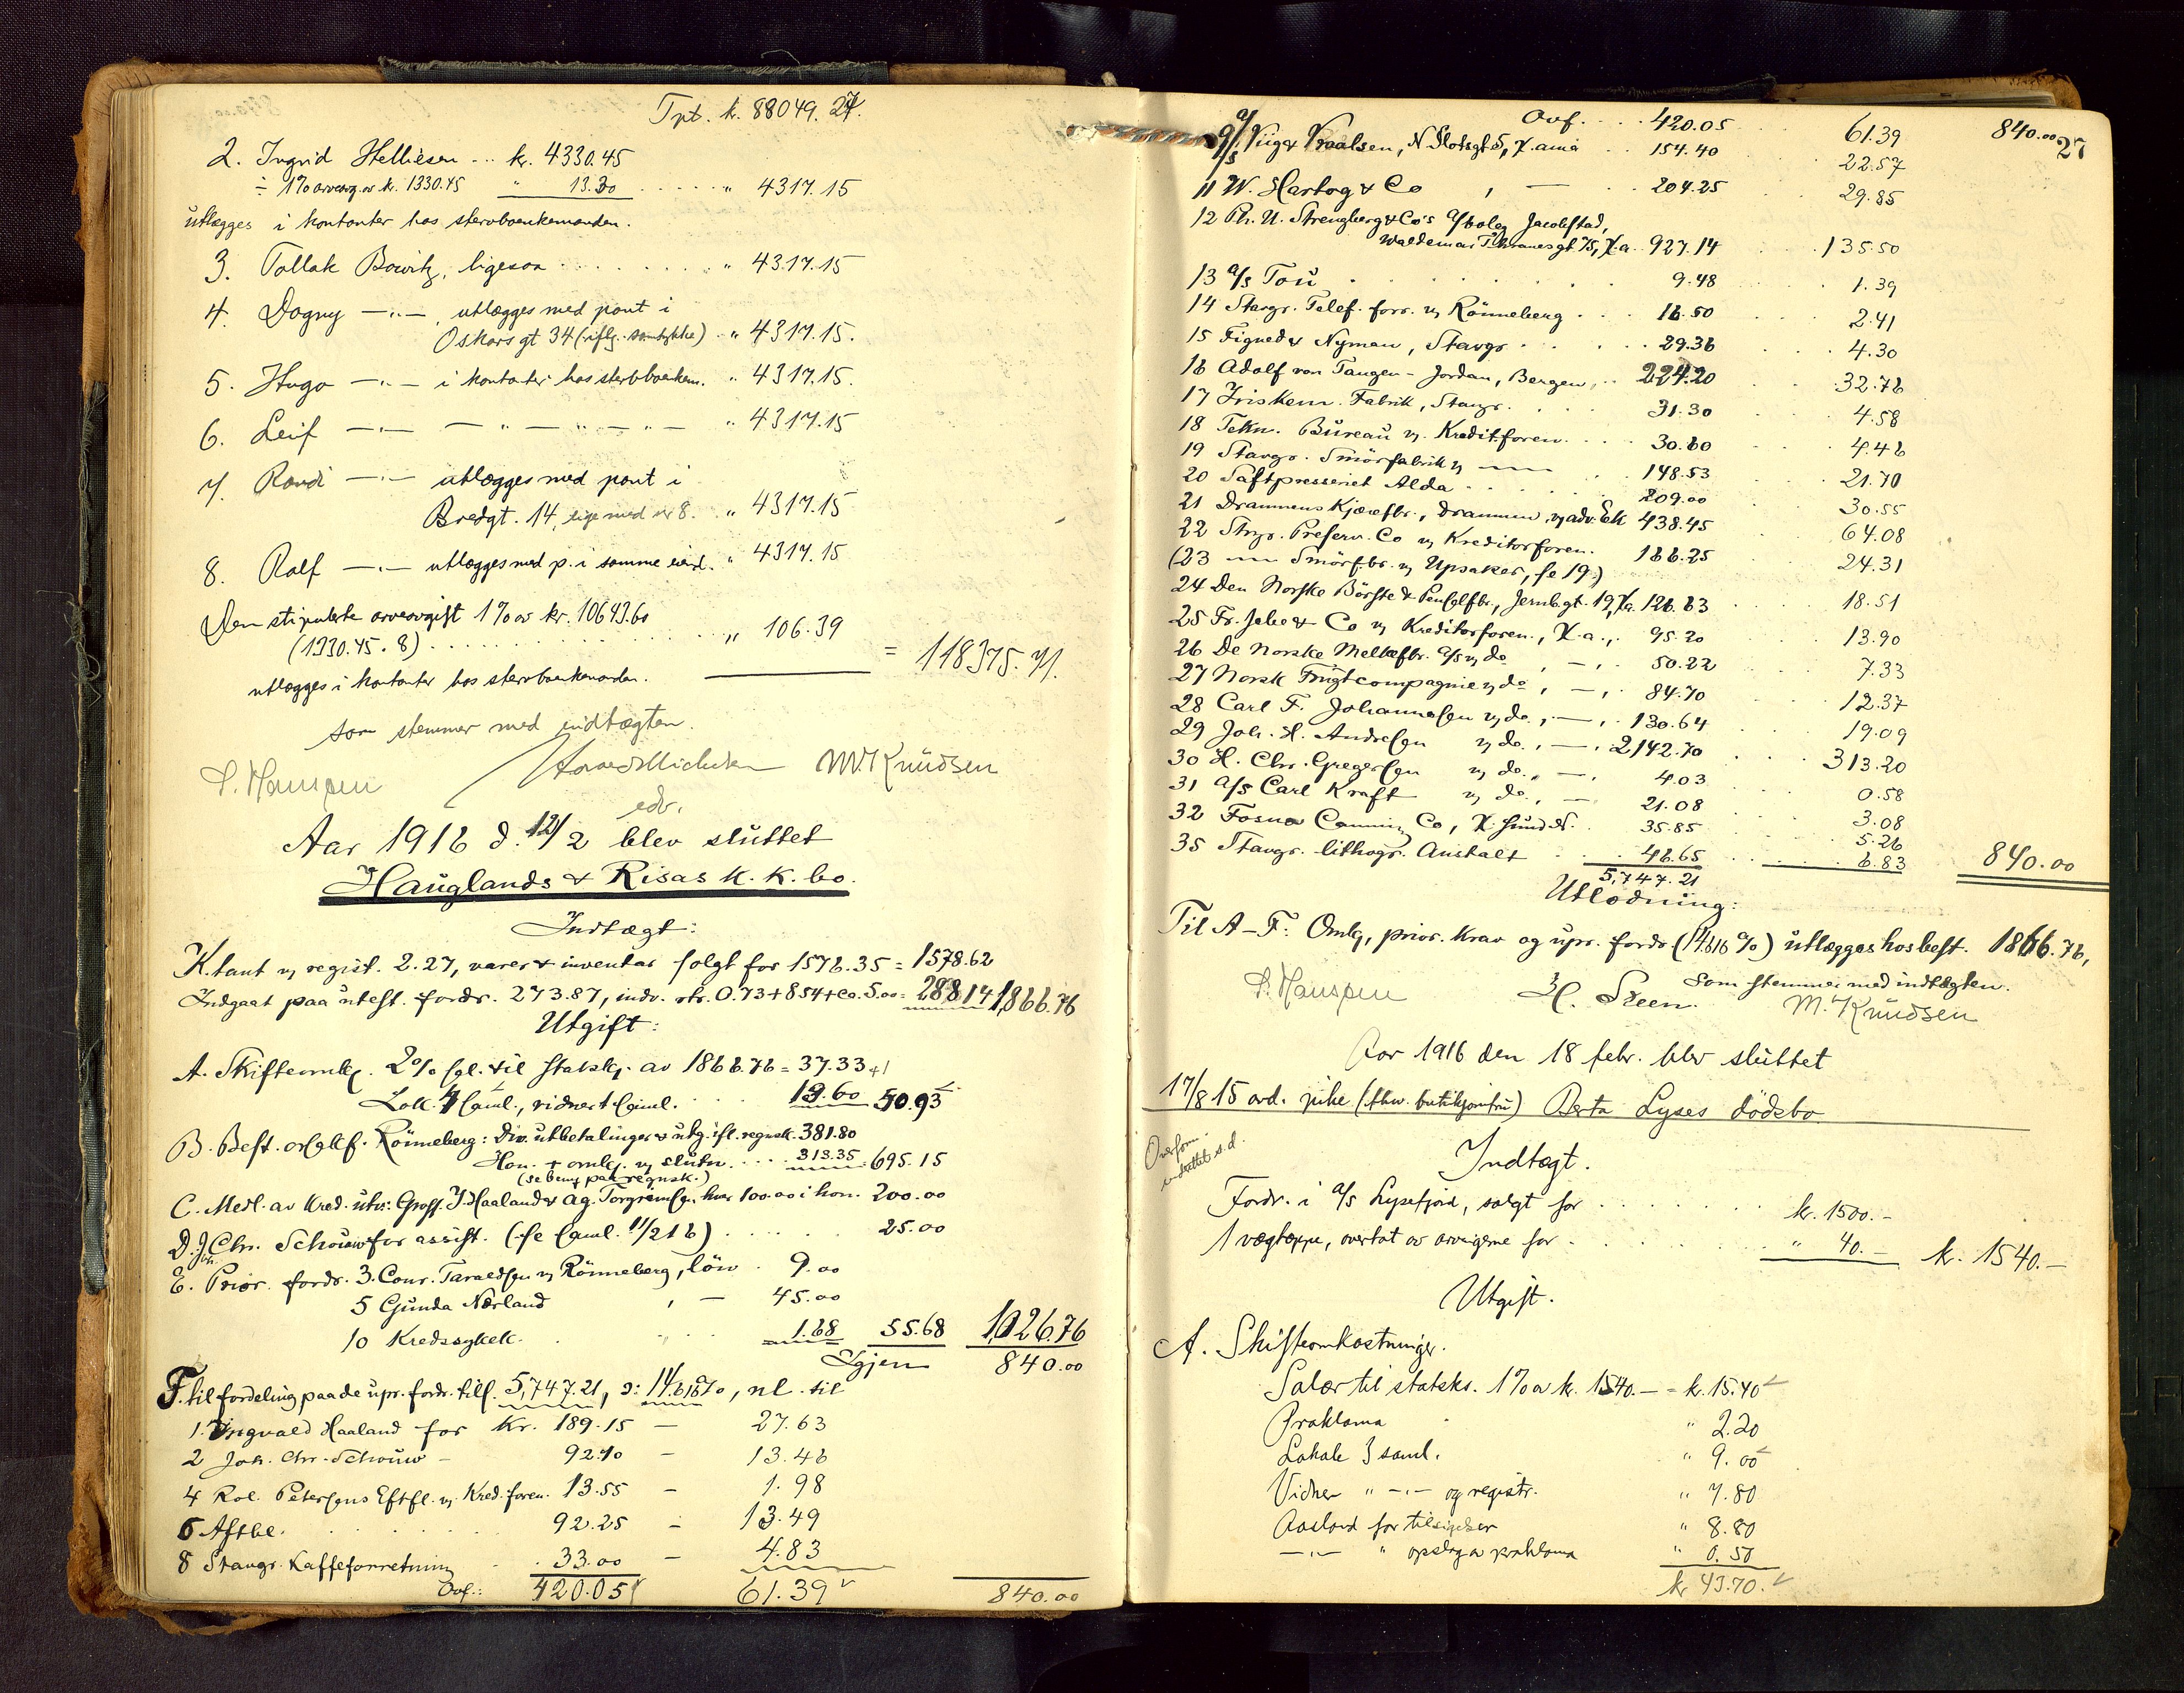 Tpt. k. 88049.24.
2. Ingrid Helliesen ... kr. 4330.45
÷ 1% arveavg. av kr. 1330.45 " 13.30 ..... " 4317.15
utlægges i kontanter hos stervboenkemanden.
3. Tollak Bowitz, ligesaa ........ " 4317.15
4. Dagny —"— utlægges med pant i
Oskars gt 34 (iflg. samtykke) .. " 4317.15.
5. Hugo —"— i kontanter hos stervboenkem. " 4317.15.
6. Leif —"— — " — " — " — " 4317.15
7. Randi —"— utlægges med pant i
Bredgt. 14, lige med nr 8. " 4317.15
8. Rolf —"— utlægges med p. i samme eiend. " 4317.15
Den stipulerte arveavgift 1% av kr. 10643.60
(1330.45 . 8) ........ " 106.39 = 118375.71.
utlægges i kontanter hos stervboenkemanden.
som stemmer med indtægten.
S. Hanssen M. Knudsen
edv.
Aar 1916 d. 12/2 blev sluttet
Hauglands & Risas k.k.bo.
Indtægt:
K.tant v, regist. 2.27, varer & inventar solgt for 1576.35 = 1578.62
Indgaat paa utest. fordr. 273.87, indv. rtr. 0.73+8.54+ca. 5.00= 288.14 1,866.76
Utgift:
A. Skifteomk. 2% sal. til statsk. av 1866.76 = 37.33
Lok. 4 saml., vidner 4 saml. .... 13.60 50.93
B. Best. o.r.sakf. Rönneberg: Div. utbetalinger & utg. ifl. regnsk. 381.80
Hon. + omk. v, slutn. .... 313.35 695.15
(se bem. paa regnsk.)
C. Medl. av Kred. utv: Gross. J. Haaland & Ag. Torgrimsen, hver 100.00 i hon. 200.00
D. Joh. Chr. Schouw for assist. (se saml. 11/2 16) ..... 25.00
E. Prior. fordr. 3. Conr. Taraldsen v, Rönneberg, lön . 9.00
5 Gunda Nærland , — 45.00
10 Kredssykek. 1.68 55.68 1,026.76
Igjen 840.00
F. til fordeling paa de upr. fordr. till. 5,747.21, ɔ: 14.616%, nl. til
1. Ingvald Haaland for Kr. 189.15 — 27.63
2 Joh. Chr. Schouw — 92.10 — 13.46
4 Rol. Petersens Eftfl. v, Kred.foren. 13.55 — 1.98
6 Aftbl. ..... 92.25 — 13.49
8 Stavgr. Kaffeforretning . 33.00 — 4.83
Ovf.: 420.05 61.39 840.00
27
Ovf. .... 420.05 61.39 840.00
9 A/S Viig & Vraalsen, N. Slotsgt 5, X.ania .. 154.40 22.57
11 W. Hartog & Co , — .. 204.25 29.85
12 Ph. U. Strengberg & Co's A/bolag Jacobstad,
Waldemar Thranesgt. 75, X.a. 927.14 135.50
13 A/S Tou ...... 9.48 1.39
14 Stavgr. Telef. forr. v, Rönneberg ... 16.50 2.41
15 Figved & Nyman, Stavgr. ..... 29.36 4.30
16 Adolf von Tangen-Jordan, Bergen, .. 224.20 32.76
17 Iris kem. Fabrik, Stavgr. .... 31.30 4.58
18 Tekn. Büreau v, Kreditforen. .... 30.60 4.46
19 Stavgr. Smörfabrik v, —"— . 148.53 21.70
20 Saftpresseriet Alda ...... 209.00 30.55
21 Drammens Kjæxfbr., Drammen, v, adv. Ek 438.45 64.08
22 Stvgr. Preserv. Co v, Kreditorforen. 166.25 24.31
(23 —"— Smörfbr. v, Upsaker, se 19.)
24 Den Norske Börste & Penselfbr., Jernb.gt. 19, X.a. 126.63 18.51
25 Fr. Jebe & Co v, Kreditorforen., X.a., . 95.20 13.90
26 De Norske Melkefbr. A/S v, do , — , . 50.22 7.33
27 Norsk Frugtcompagnie v, do , — , . 84.70 12.37
28 Carl F. Johannesen v, do., — , . 130.64 19.09
29 Joh. H. Andresen v, do., — , 2142.70 313.20
30 H. Chr. Gregersen v, do., — . 4.03 0.58
31 A/S Carl Kraft v, do., — 21.08 3.08
32 Fosna Canning Co, K.sund N. . 35.85 5.26
35 Stavgr. lithogr. Anstalt . 46.65 6.83 840.00
5,747.21
Utlodning:
Til A-F: Omk., prior. krav og upr. fordr. (14.616%) utlægges hos best. 1866.76,
som stemmer med indtægten.
S. Hanssen H. Steen. M. Knudsen
Aar 1916 den 18 febr. blev sluttet
17/8 15 avd. pike (fhv. butikjomfru) Berta Lyses dödsbo
Overform.
indrettet s.d.
Indtægt.
Fordr. i A/S Lysefjord, solgt for ....... kr. 1500.-
1 vægteppe, overtat av arvingerne for ..... " 40.— kr. 1540.—
Utgift.
A. Skifteomkostninger.
Salær til statsks. 1% av kr. 1540.— = kr. 15.40
Proklama " 2.20
Lokale 3 saml. " 9.00
Vidner " —"— og registr. " 7.80
Aasland for tilsigelser " 8.80
—"— " opslag av proklama " 0.50
kr 43.70.